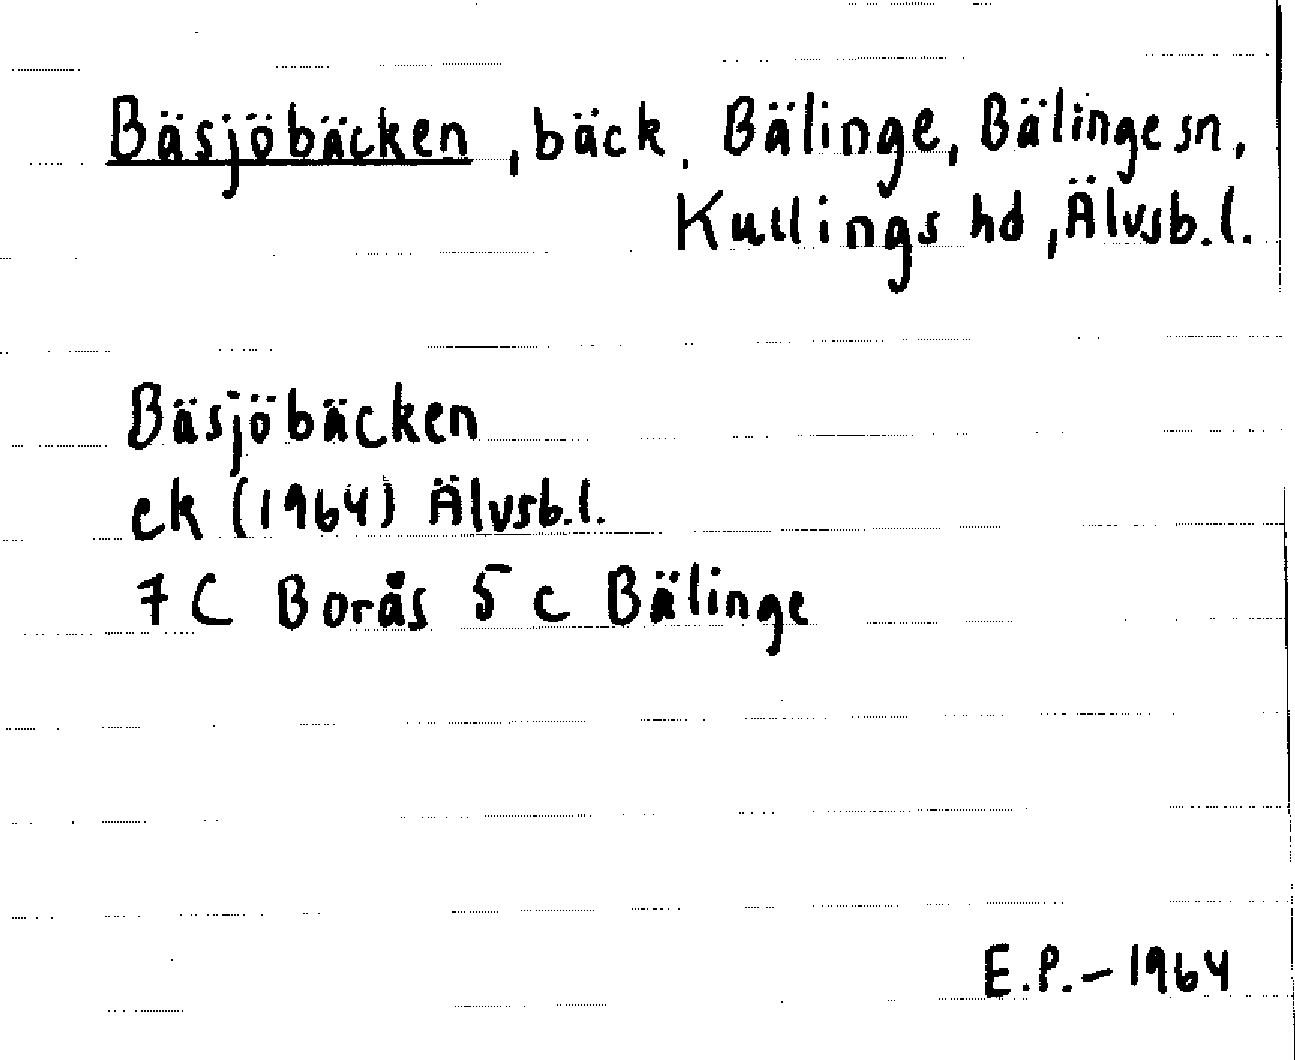 Bäsjöbäcken, bäck, Bälinge, Bälinge sn,
Kullings hd, Älvsb.l.
Bäsjöbäcken
ek (1964) Älvsb.l.
7 C Borås 5 c Bälinge
E.P.-1964